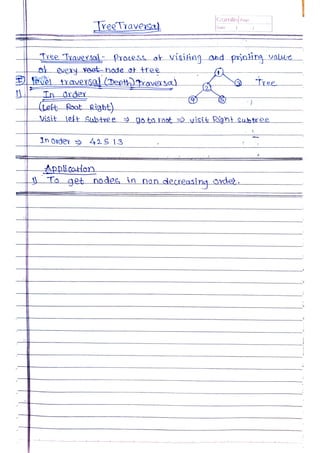 Tree Traversal
Tree Traversal - Process of visiting and printing value
of every node of tree
level traversal (Depth Traversal)
1
2
3
4
5
Tree
1) In Order
(Left Root Right)
Visit left Subtree ⇒ go to root ⇒ visit Right subtree
Inorder ⇒ 4 2 5 1 3
Application
1) To get nodes in non decreasing order.